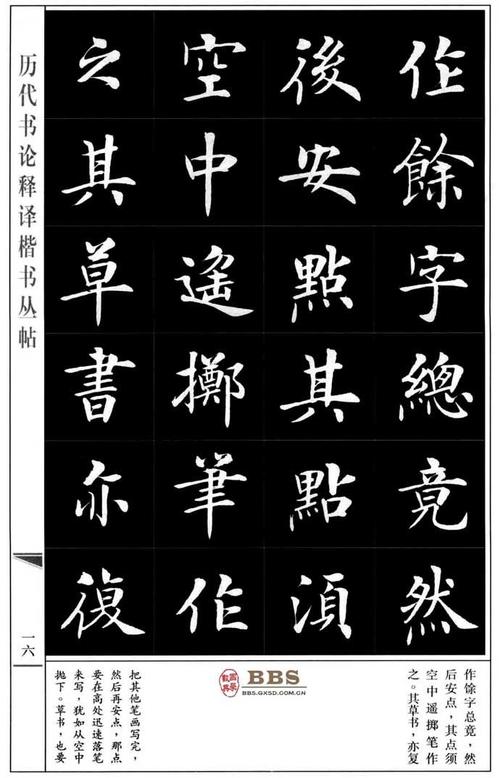 历代书论释译楷书丛帖
一六
作餘字總竟然
後安點其點須
空中遙擲筆作
之其草書亦復
作馀字总竟，然
后安点，其点须
空中遥掷笔作
之。其草书，亦复
BBS
BBS.GXSD.COM.CN
把其他笔画写完，
然后再安点，那点
要在高处迅速落笔
来写，犹如从空中
抛下。草书，也要